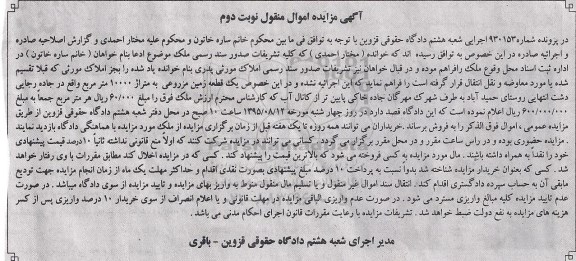 آگهی مزایده اموال منقول نوبت دوم
در پرونده شماره ۹۳۰۱۵۳ اجرایی شعبه هشتم دادگاه حقوقی قزوین با توجه به توافق فی ما بین محکوم خانم ساره خاتون و محکوم علیه مختار احمدی و گزارش اصلاحیه صادره
و اجرائیه صادره در این خصوص به توافق رسیده اند که خوانده ( مختار احمدی ) که کلیه تشریفات صدور سند رسمی ملک موضوع ادعا بنام خواهان ( خانم ساره خاتون ) در
اداره ثبت اسناد محل وقوع ملک رافراهم نموده و در قبال خواهان نیز تشریفات صدور سند رسمی املاک مورثی پدری بنام خوانده یاد شده را بجز املاک مورثی که قبلا تقسیم
شده یا مورد معاوضه و نقل انتقال قرار گرفته است را فراهم نماید که این اجرائیه نشده و در این خصوص یک قطعه زمین مزروعی به متراژ ۱۰۰۰۰ متر مربع واقع در جاده رجایی
دشت انتهایی روستای حمید آباد به طرف شهرک مهرگان جاده خاکی پایین تر از کانال آب که کارشناس محترم ارزش ملک فوق را مبلغ ۶۰/۰۰۰ ریال هر متر مربع جمعا به مبلغ
۶۰۰/۰۰۰/۰۰۰ ریال اعلام نموده است که این دادگاه قصد دارد در روز چهار شنبه مورخه ۱۳۹۵/۰۸/۱۲ ساعت ۱۰ صبح در محل دفتر شعبه هشتم دادگاه حقوقی قزوین از طریق
مزایده عمومی ، اموال فوق الذکر را به فروش برساند .خریداران می توانند همه روزه تا یک هفته قبل از زمان برگزاری مزایده از ملک مورد مزایده با هماهنگی دادگاه بازدید نمایند
. مزایده حضوری بوده و در راس ساعت مقرر و در محل مقرر برگزار می گردد . کسانی می توانند در مزایده شرکت کنند که اولاً منع قانونی نداشته ثانیاً ۱۰درصد قیمت پیشنهادی
خود را نقداً به همراه داشته باشند . مال مورد مزایده به کسی فروخته می شود که بالاترین قیمت را پیشنهاد کند . کسی که در مزایده اخلال کند مطابق مقررات با وی رفتار خواهد
شد . کسی که بعنوان خریدار مزایده شناخته شد بدواً نسبت به پرداخت ۱۰ درصد مبلغ پیشنهادی بصورت نقدی اقدام و حداکثر مهلت یک ماه از زمان انجام مزایده جهت تودیع
مابقی آن به حساب سپرده دادگستری اقدام کند . انتقال سند اموال غیر منقول و یا تسلیم مال منقول منوط به واریز بهای مزایده و تایید مزایده از سوی دادگاه میباشد . در صورت
عدم تایید مزایده کلیه مبالغ واریزی مسترد می شود . در صورت عدم واریزی الباقی مزایده در مهلت قانونی و یا اعلام انصراف از سوی خریدار ۱۰ درصد واریزی پس از کسر
هزینه های مزایده به نفع دولت ضبط خواهد شد . تشریفات مزایده با رعایت مقررات قانون اجرای احکام مدنی می باشد .
مدیر اجرای شعبه هشتم دادگاه حقوقی قزوین - باقری